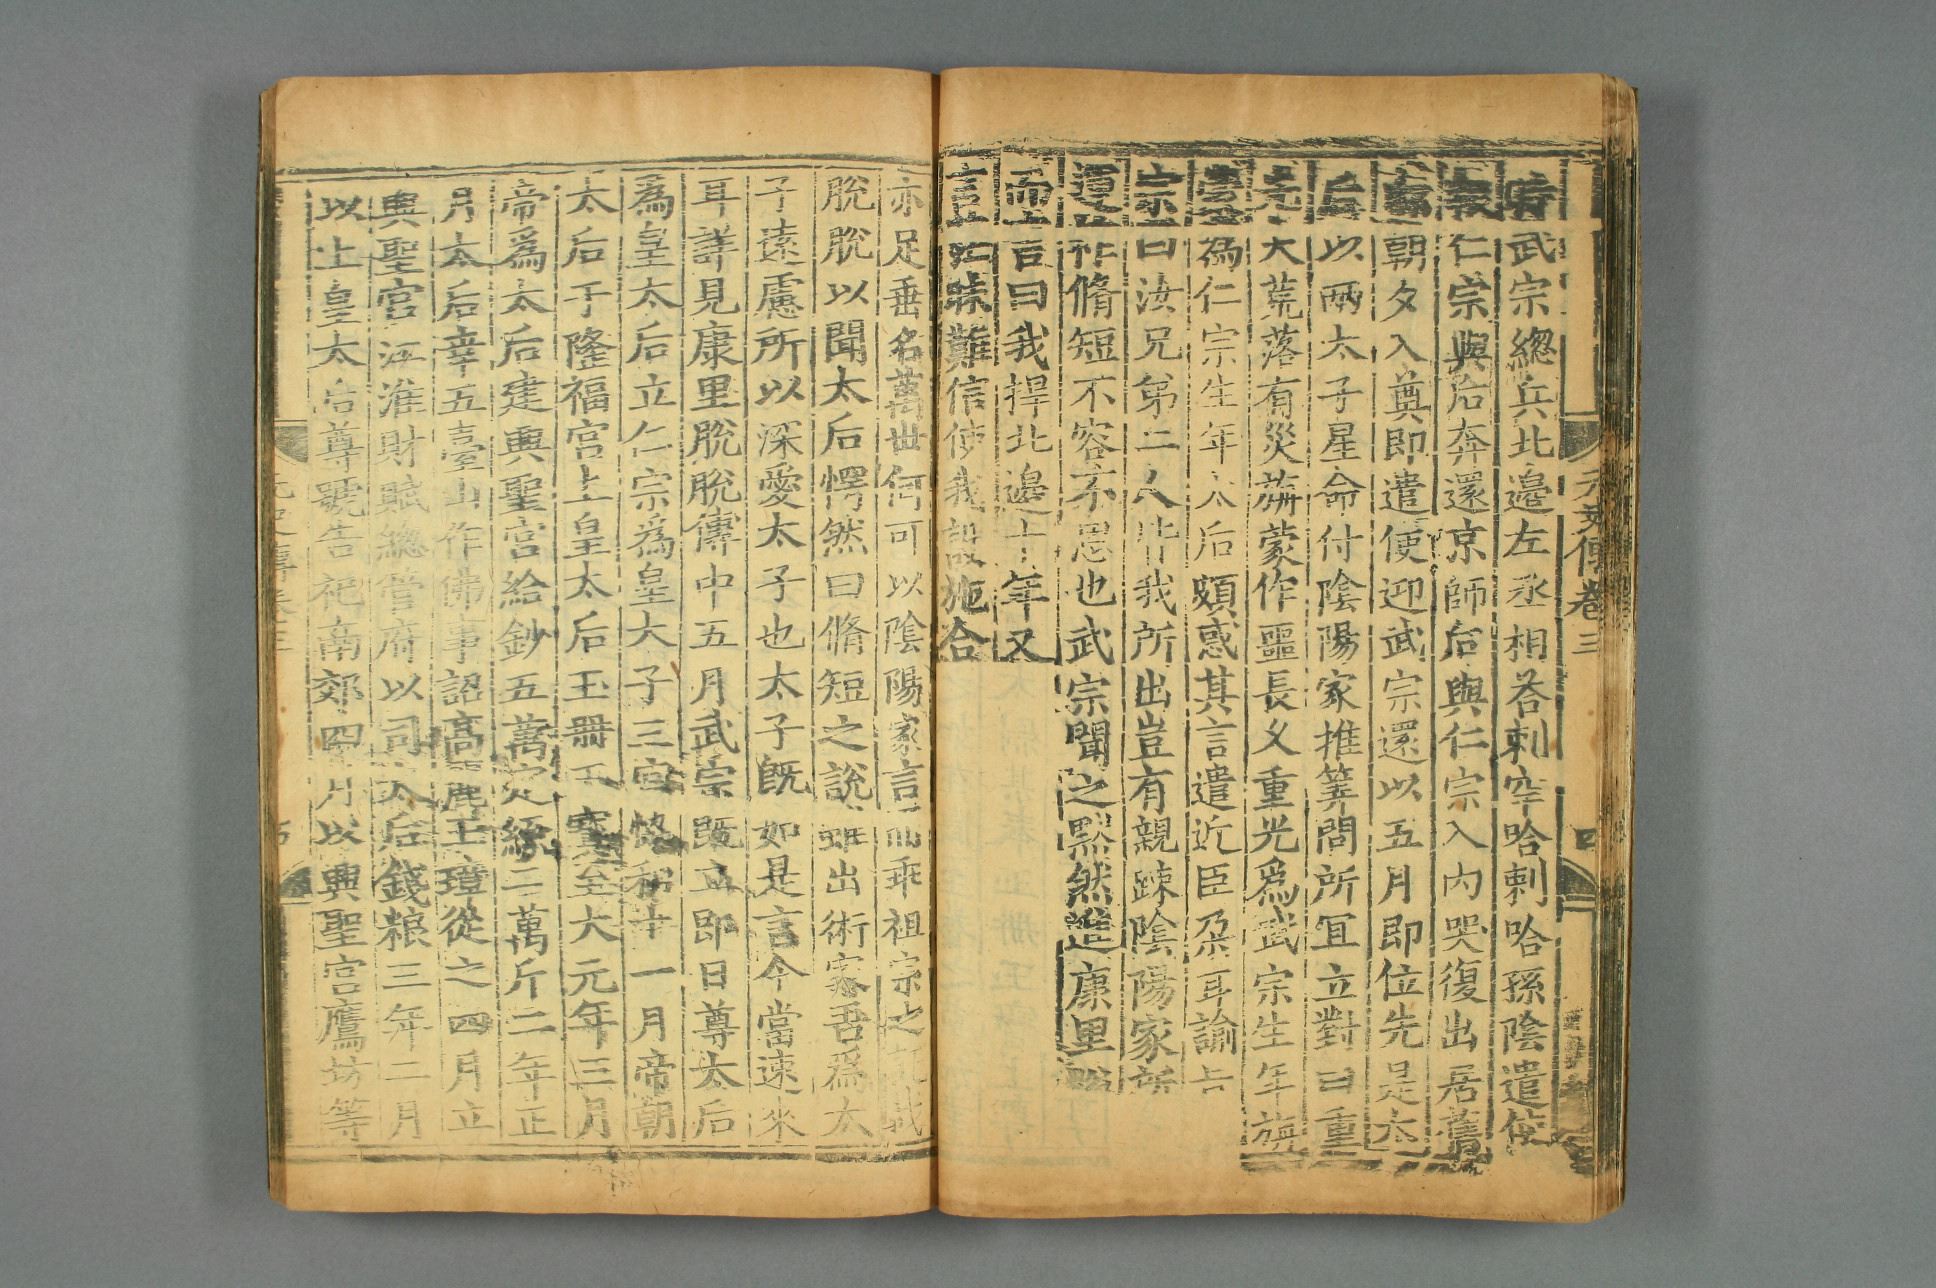 時武宗總兵北邊左丞相荅剌罕哈剌哈孫陰遣使
報仁宗與后奔還京師后與仁宗入內哭復出居舊
邸朝夕入奠即遣使迎武宗還以五月即位先是太
后以兩太子星命付陰陽家推筭問所宜立對曰重
光大荒落有災旃蒙作噩長久重光爲武宗生年旃
蒙爲仁宗生年太后頗惑其言遣近臣朶耳諭旨
宗曰汝兄弟二人皆我所出豈有親踈陰陽家所
運祚脩短不容不思也武宗聞之黙然進康里脫
而言曰我捍北邊十年又
言如昧難信使我設施合
元史傳卷三
四
亦足垂名萬世何可以陰陽家言而乖祖宗之託哉
脫脫以聞太后愕然曰脩短之說雖出術家吾爲太
子遠慮所以深愛太子也太子旣如是言今當速來
耳詳見康里脫脫傳中五月武宗旣立即日尊太后
爲皇太后立仁宗爲皇太子三宮恊和十一月帝朝
太后于隆福宮上皇太后玉冊玉寶至大元年三月
帝爲太后建興聖宮給鈔五萬定絲二萬斤二年正
月太后幸五臺山作佛事詔高麗王璋從之四月立
興聖宮江淮財賦總管府以司太后錢粮三年二月
以上皇太后尊號告祀南郊四月以興聖宮鷹坊等